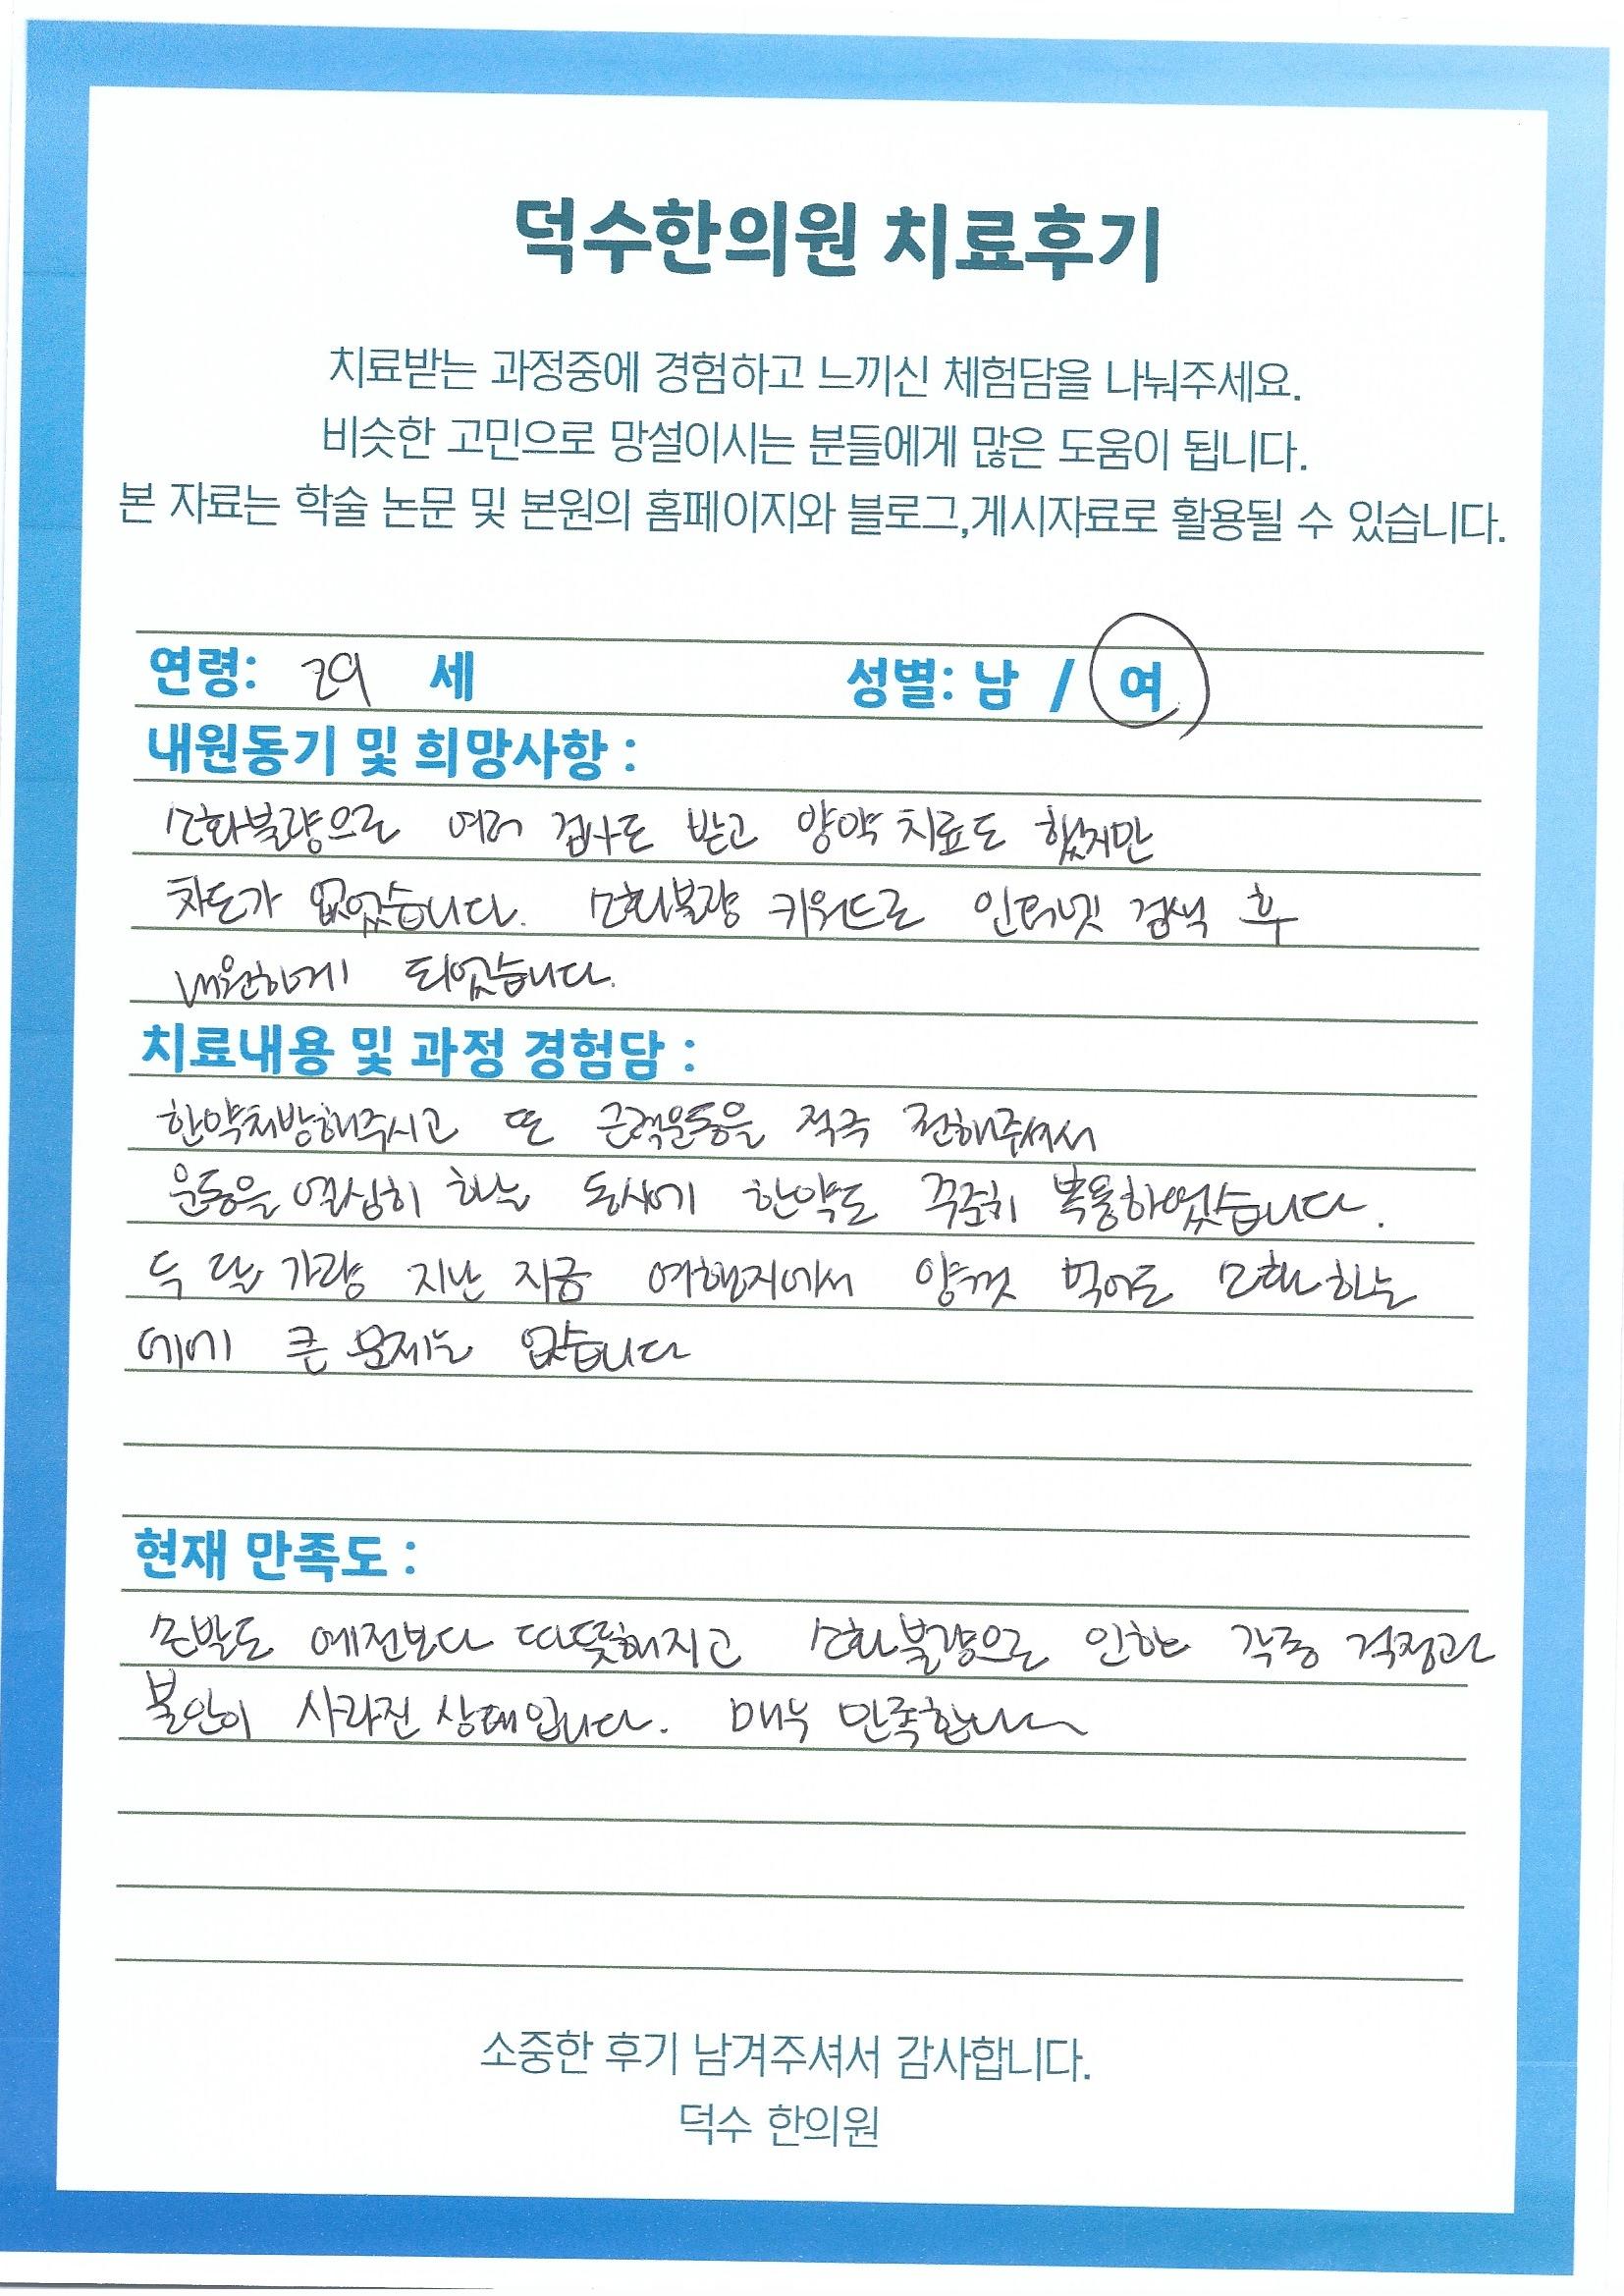 덕수한의원 치료후기
치료받는 과정중에 경험하고 느끼신 체험담을 나눠주세요.
비슷한 고민으로 망설이시는 분들에게 많은 도움이 됩니다.
본 자료는 학술 논문 및 본원의 홈페이지와 블로그,게시자료로 활용될 수 있습니다.
연령: 29 세 성별: 남 / 여
내원동기 및 희망사항 :
소화불량으로 여러 검사도 받고 양약 치료도 했지만
차도가 없었습니다. 소화불량 키워드로 인터넷 검색 후
내원하게 되었습니다.
치료내용 및 과정 경험담 :
한약처방해주시고 또 근력운동을 적극 전해주셔서
운동을 열심히 하는 동시에 한약도 꾸준히 복용하였습니다.
두 달 가량 지난 지금 여행지에서 양껏 먹어도 소화하는
데에 큰 문제는 없습니다
현재 만족도 :
손발도 예전보다 따뜻해지고 소화불량으로 인한 각종 걱정과
불안이 사라진 상태입니다. 매우 만족합니다
소중한 후기 남겨주셔서 감사합니다.
덕수 한의원